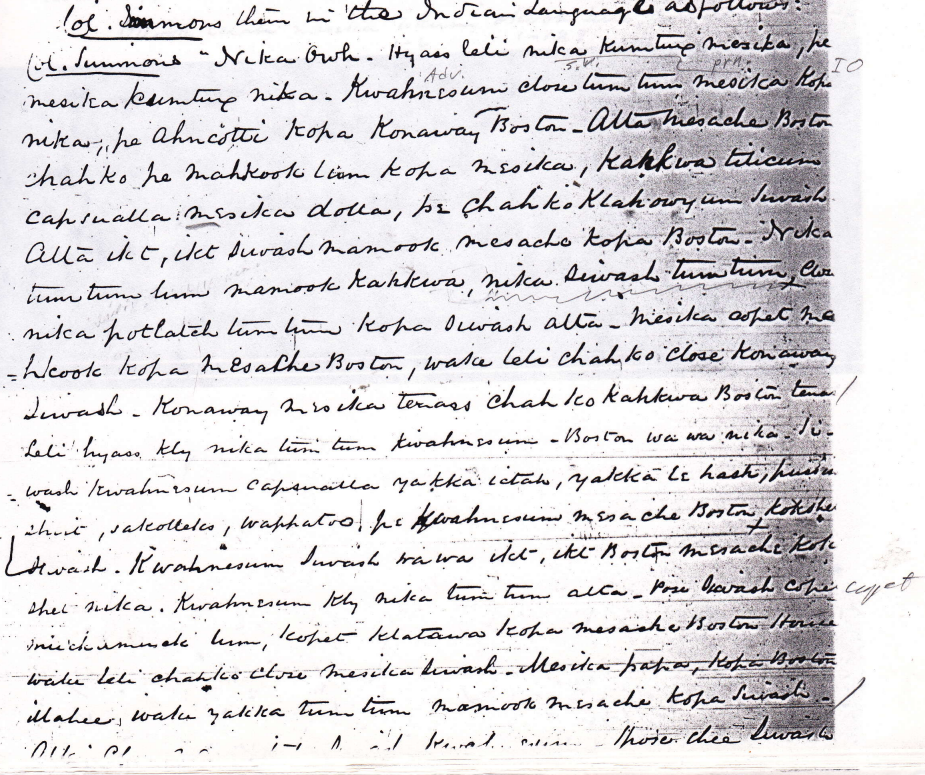 Col. Simmons them in the Indian Language as follows:
Col. Simmons "Nika Owh. Hyass leli nika Kumtux mesika, pe IO
Adv. s.v. prn.
mesika kumtux nika. Kwahnesum close tum tum mesika Kopa
nika, pe Ahncotti Kopa Konaway Boston - Alta Mesache Boston
chahko pe mahkook lum Kopa mesika, Kahkwa tilicum
capsualla mesika dolla, pe chahko Klahowyum Siwash
Alta ikt, ikt Siwash mamook mesache Kopa Boston - Nika
tum tum lum mamook Kahkwa, nika Siwash tum tum, Clo
nika potlatch tum tum Kopa Siwash alta - Mesika copet ma
=hkook Kopa mesache Boston, wake leli chahko close Konaway
Siwash - Konaway mesika tenass chahko Kahkwa Boston tena
Leli hyass kly nika tum tum Kwahnesum - Boston wa wa nika - Si-
=wash Kwahnesum capsualla yakka ictah, yakka Le hash,
shut, sakolleks, wappatoo, pe Kwahnesum mesache Boston Kokshe
Siwash. Kwahnesum Siwash wa wa ikt, ikt Boston mesache Kok
shet nika. Kwahnesum Kly nika tum tum alta - Pose Siwash cope copet
muckamuck lum, kopet klatawa Kopa mesache Boston House
wake leli chahko close mesika Siwash - Mesika papa, Kopa Boston
illahee, wake yakka tum tum mamook mesache Kopa Siwash -
those chee Siwash